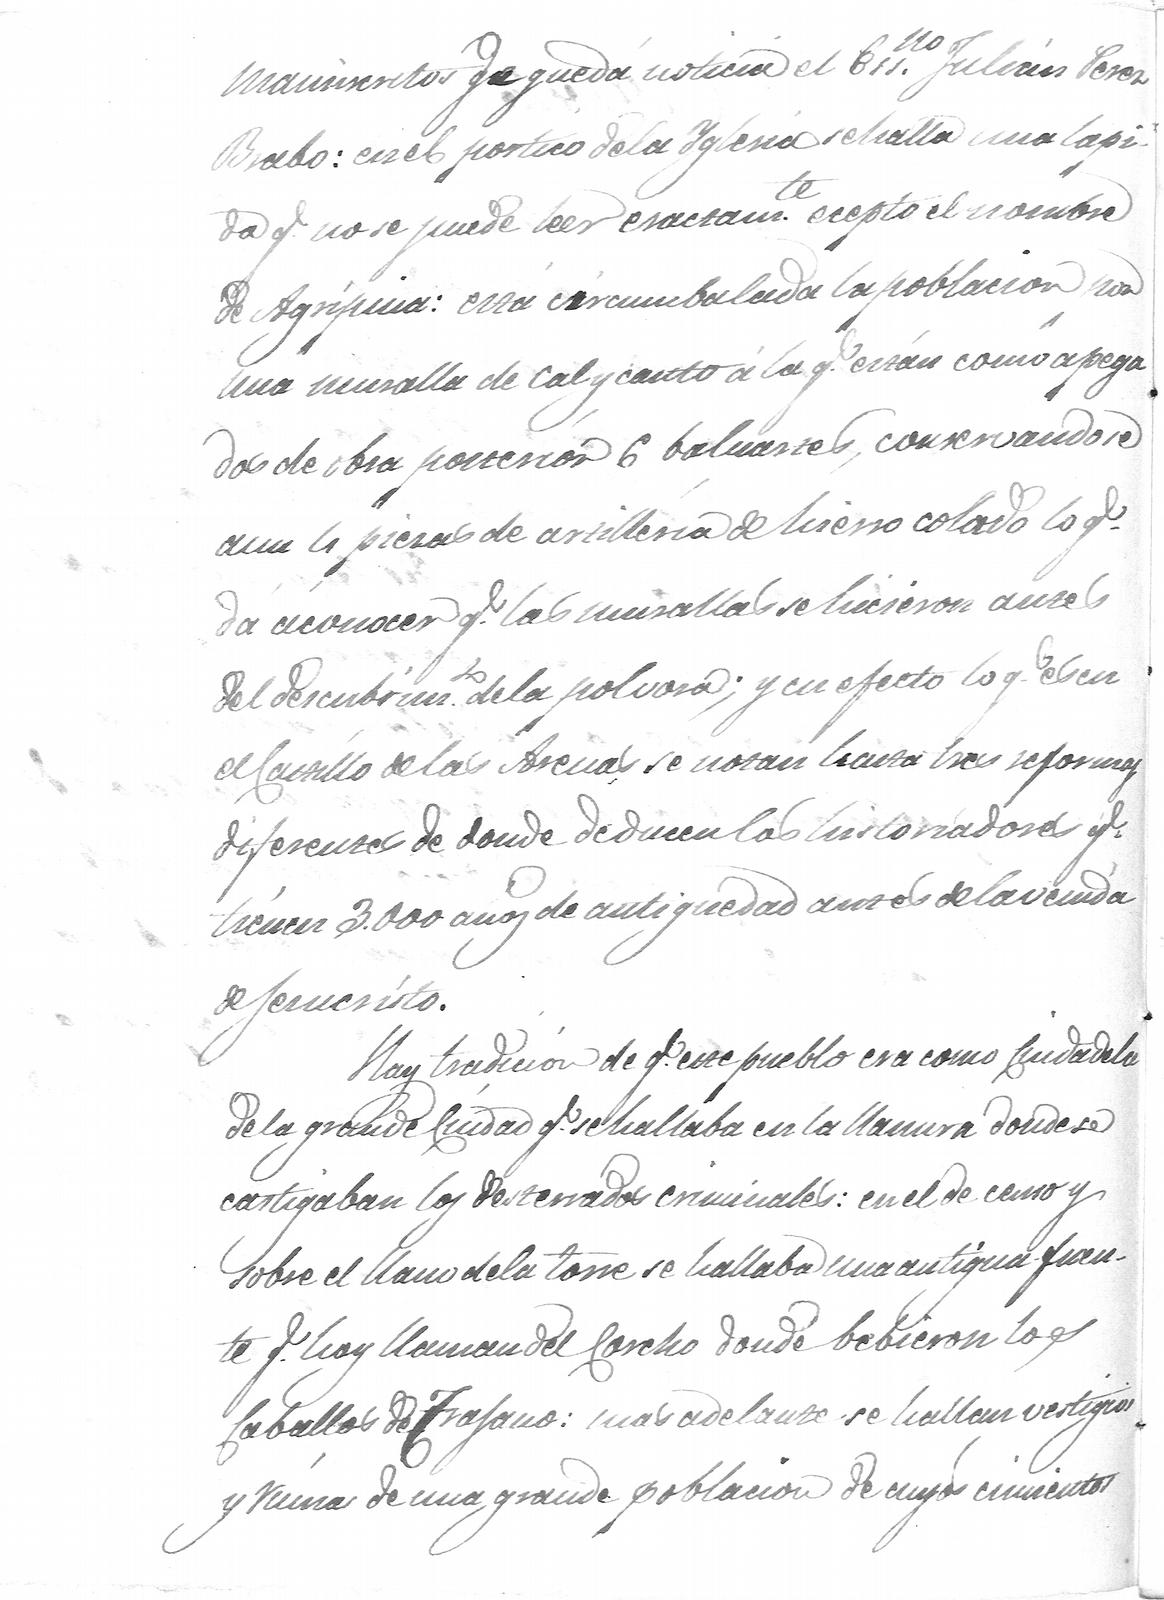 manimientos qe. queda noticia el Ess.no Julián Perez
Brabo: en el portico dela Yglesia se halla una lapi-
da q.e no se puede leer exactam.te ecepto el nombre
de Agripina: está circumbalada la poblacion por
una muralla de cal y canto á la q.e están como apega
dos de obra posterior 6 baluartes, conservandose
aun 4 piezas de artilleria de hierro colado lo q.e
dá áconocer q.e las murallas se hicieron antes
del descubrim.to dela polvora; y en efecto lo q.e es en
el Castillo de las Arenas se notan hasta tres reformas
diferentes de donde deducen los historiadores q.e
tienen 3.000 años de antiguedad antes de la venida
de Jesucristo.
Hay tradicion de q.e este pueblo era como Ciudadela
dela grande Ciudad q.e se hallaba en la llanura donde se
castigaban los desterrados criminales: en el de cerro y
sobre el llano dela torre se hallaba una antigua fuen-
te q.e hoy llaman del Corcho donde bebieron los
Caballos de Trajano: mas adelante se hallan vestigios
y ruina de una grande poblacion de cuyos cimientos